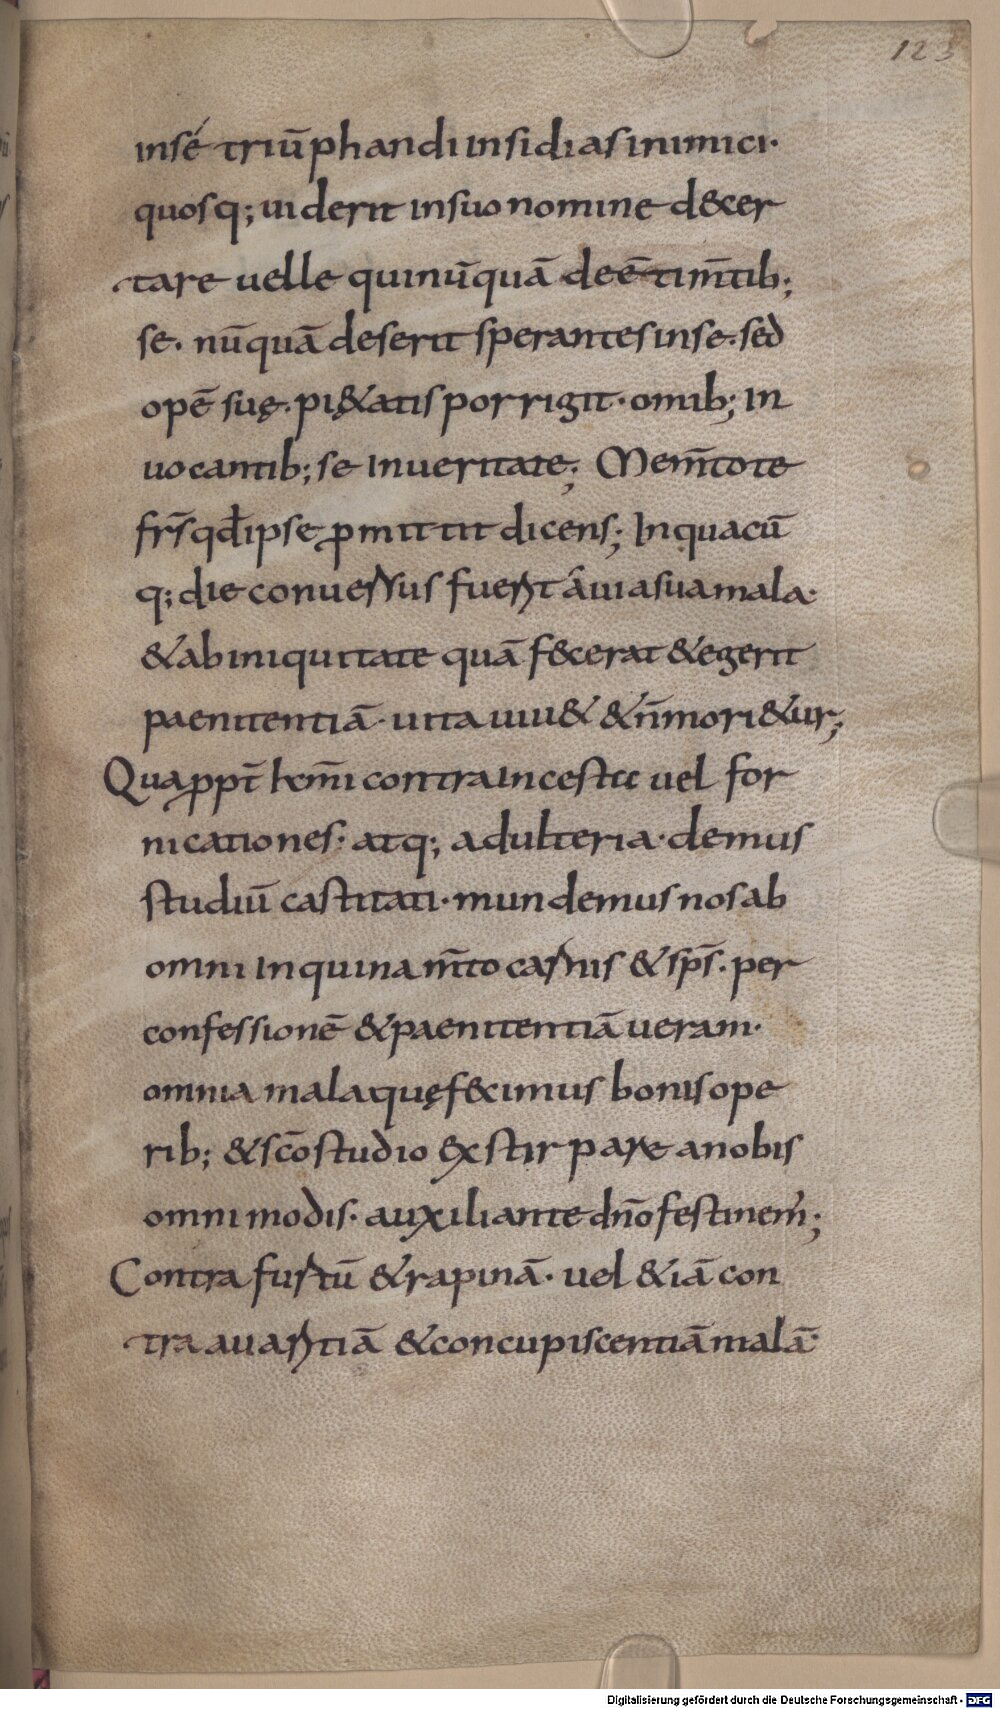 123
insé triūphandi insidias inimici·
quosq; uiderit insuo nomine d&cer
tare uelle qui nūquā deē tim̄tib;
se· nūquā deserit sperantes inse· sed
opē suę· pi&atis porrigit· omib; in
uocantib; se inueritate; Mem̄tote
fr̄s qđ ipse ꝓmittit dicens; Inquacū
q; die conuersus fuerit á uia sua mala·
& ab iniquitate quā f&cerat & egerit
paenitentiā· uita uiu& & ñ mori&ur;
Quaꝓpt̄ km̄i contra incestu uel for
nicationes· atq; adulteria· demus
studiū castitati· mundemus nos ab
omni inquinam̄to carnis & sp̄s· per
confessionē & paenitentiā ueram·
omnia mala quę f&cimus bonis ope
rib; & sc̄o studio exstirpare a nobis
omnimodis· auxiliante dn̄o festinem';
Contra furtū & rapinā· uel & iā con
tra auaritiā & concupiscentiā malā·
Digitalisierung gefördert durch die Deutsche Forschungsgemeinschaft - DFG